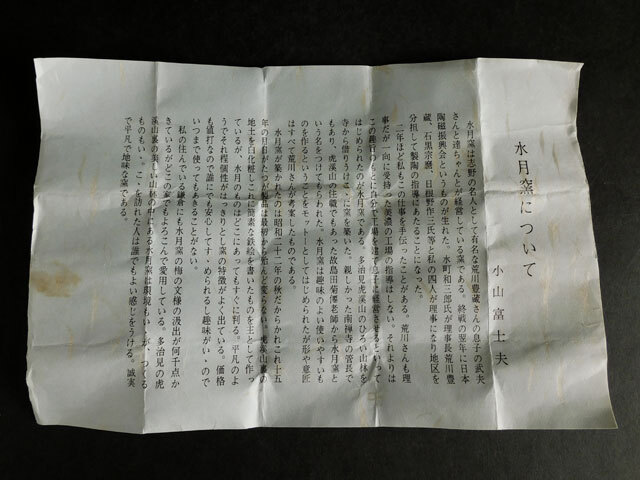 水月窯について
小山富士夫
水月窯は志野の名人として有名な荒川豊蔵さんの息子の武夫
さんと達ちゃんとが経営している窯である。終戦の翌年に日本
陶磁振興会というものが生れた。水町和三郎氏が理事長荒川豊
蔵、石黒宗麿、日根野作三氏等と私の四人が理事になり地区を
分担して製陶の指導にあたることになった。
二年ほど私もこの仕事を手伝ったことがある。荒川さんも理
事だが一向に受持った美濃の工場の指導はしない。それよりは
この趣旨のもとに自分で工場を建て息子に経営させるといって
はじめられたのが水月窯である。多治見虎渓山のひろい山林を
寺から借りうけこゝに窯を築いた。親しかった南禅寺の管長で
もあり、虎渓山の住職でもあった故島田菊僊老師から水月窯と
いう名をつけてもらわれた。水月窯は趣味のよい使いやすいも
のを作るということをモットーとしてはじめられたが形や意匠
はすべて荒川さんが考案したものである。
水月窯が築かれたのは昭和二十二年の秋だからかれこれ十五
年の月日がたつが製品は最初から殆んど変らない。虎渓山裏の
地土を白化粧しこれに簡素な鉄絵を書いたものを主として作っ
ているが、水月のものはどこにあってもすぐに判る。平凡のよ
うでそれ程個性がはっきりとし窯の特徴がよく出ている。価格
も値打なので誰にでも安心してすゝめられるし趣味がいゝので
いつまで使ってもあきることがない。
私の住んでいる鎌倉にも水月窯の梅の文様の汲出が何千点か
きているがどこの家でもよろこんで愛用している。多治見の虎
渓山裏の奥深い山林の中にある水月窯は環境もいゝが、つくる
ものもいゝ。こゝを訪れた人は誰でもよい感じをうける。誠実
で平凡で地味な窯である。